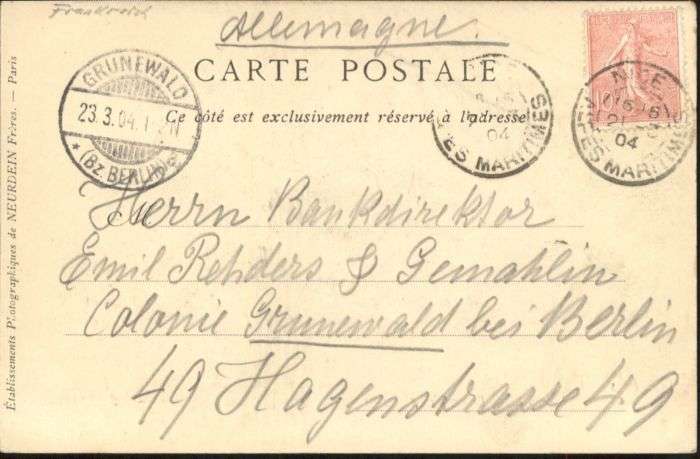 Frankreich
Allemagne.
CARTE POSTALE
Ce côté est exclusivement réservé à l'adresse
GRUNEWALD
23.3.04.
* (BZ. BERLIN)
NICE
04
MARITIMES
04
MARITIMES
Herrn Bankdirektor
Emil Rehders & Gemahlin
Colonie Grunewald bei Berlin
49 Hagenstrasse 49
Établissements Photographiques de NEURDEIN Frères. — Paris